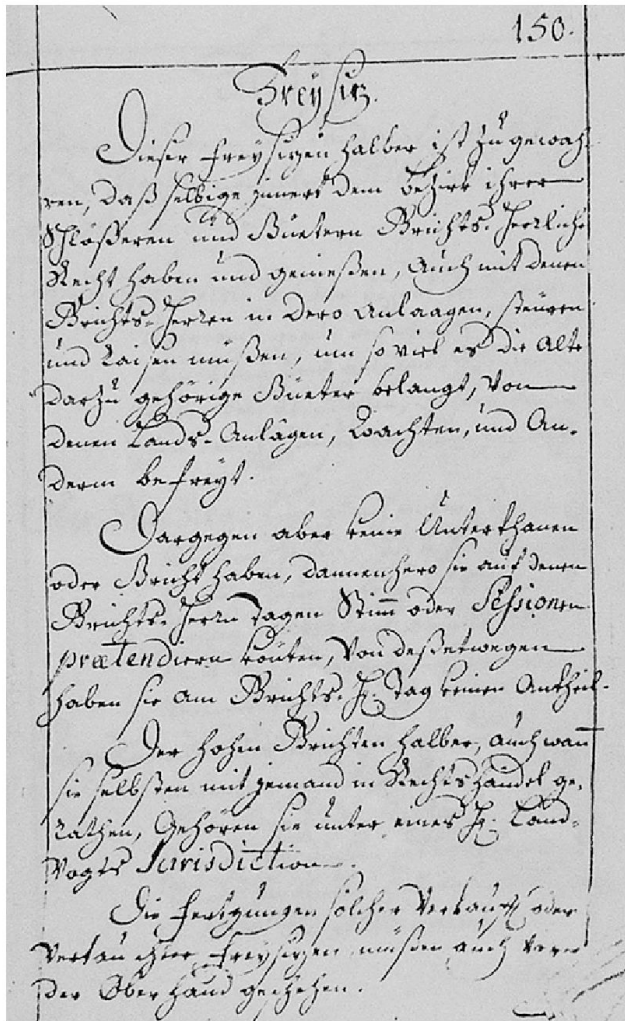 150.
Freysitz.
Dieser Freysitzen halber ist zu gewah-
ren, daß selbige innert dem bezirk ihrer
Schlößeren und Güetern Grichts-Herrliche
Recht haben und genießen, Auch mit denen
Grichts-Herren in Dero Anlaagen, steüren
und Raisen müßen, um so viel es die Alte
darzu gehörige Güeter belangt, Von
denen Lands-Anlagen, Wachten, und An-
derm befreyt.
Dargegen aber keine Unterthanen
oder Gricht haben, dannenhero sie auf denen
Grichts-Herrn Tagen Stimm oder Sessionen
prætendiern könten, Von deßetwegen
haben sie am Grichts-H. Tag keinen Antheil.
Der hohen Grichten halber, auch wann
sie selbsten mit jemand in Rechtshändel ge-
rathen, Gehören sie unter eines H. Land-
Vogts Jurisdiction.
Die Fertgungen solcher Verkauff oder
Vertauschter Freysitzen müßen auch Vor
der Oberhand geschehen.